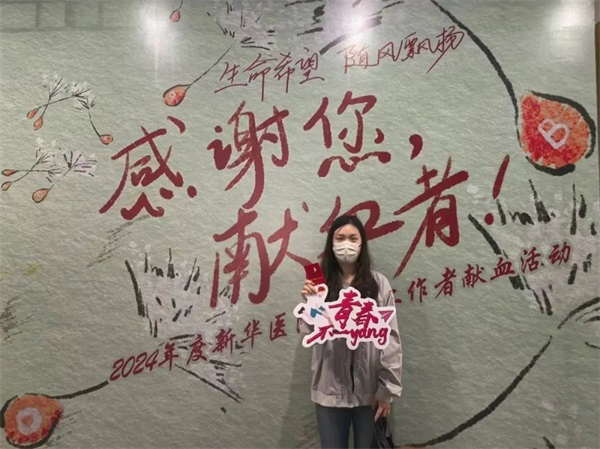 生命希望 随风飘扬
感谢您,
献 者!
2024年度新华医 作者献血活动
B
青春
yang
O